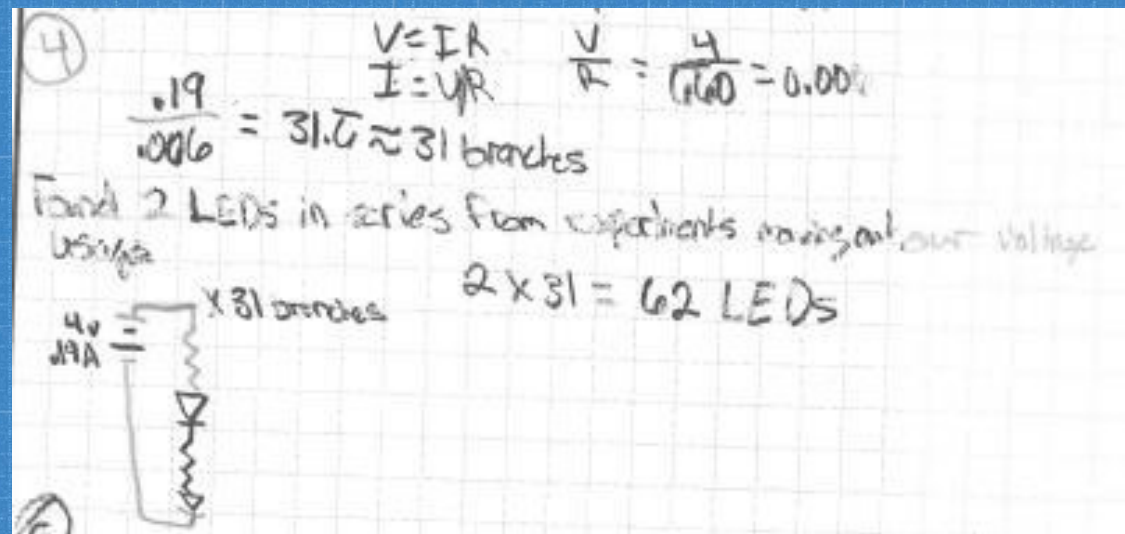 4
V=IR
I=V/R
V/R = 4/ = 0.00
.19/.006 = 31.6̅ ≈ 31 branches
Found 2 LEDs in series from experiments maxing out our voltage
usage
2 X 31 = 62 LEDs
X 31 branches
4v
.19A